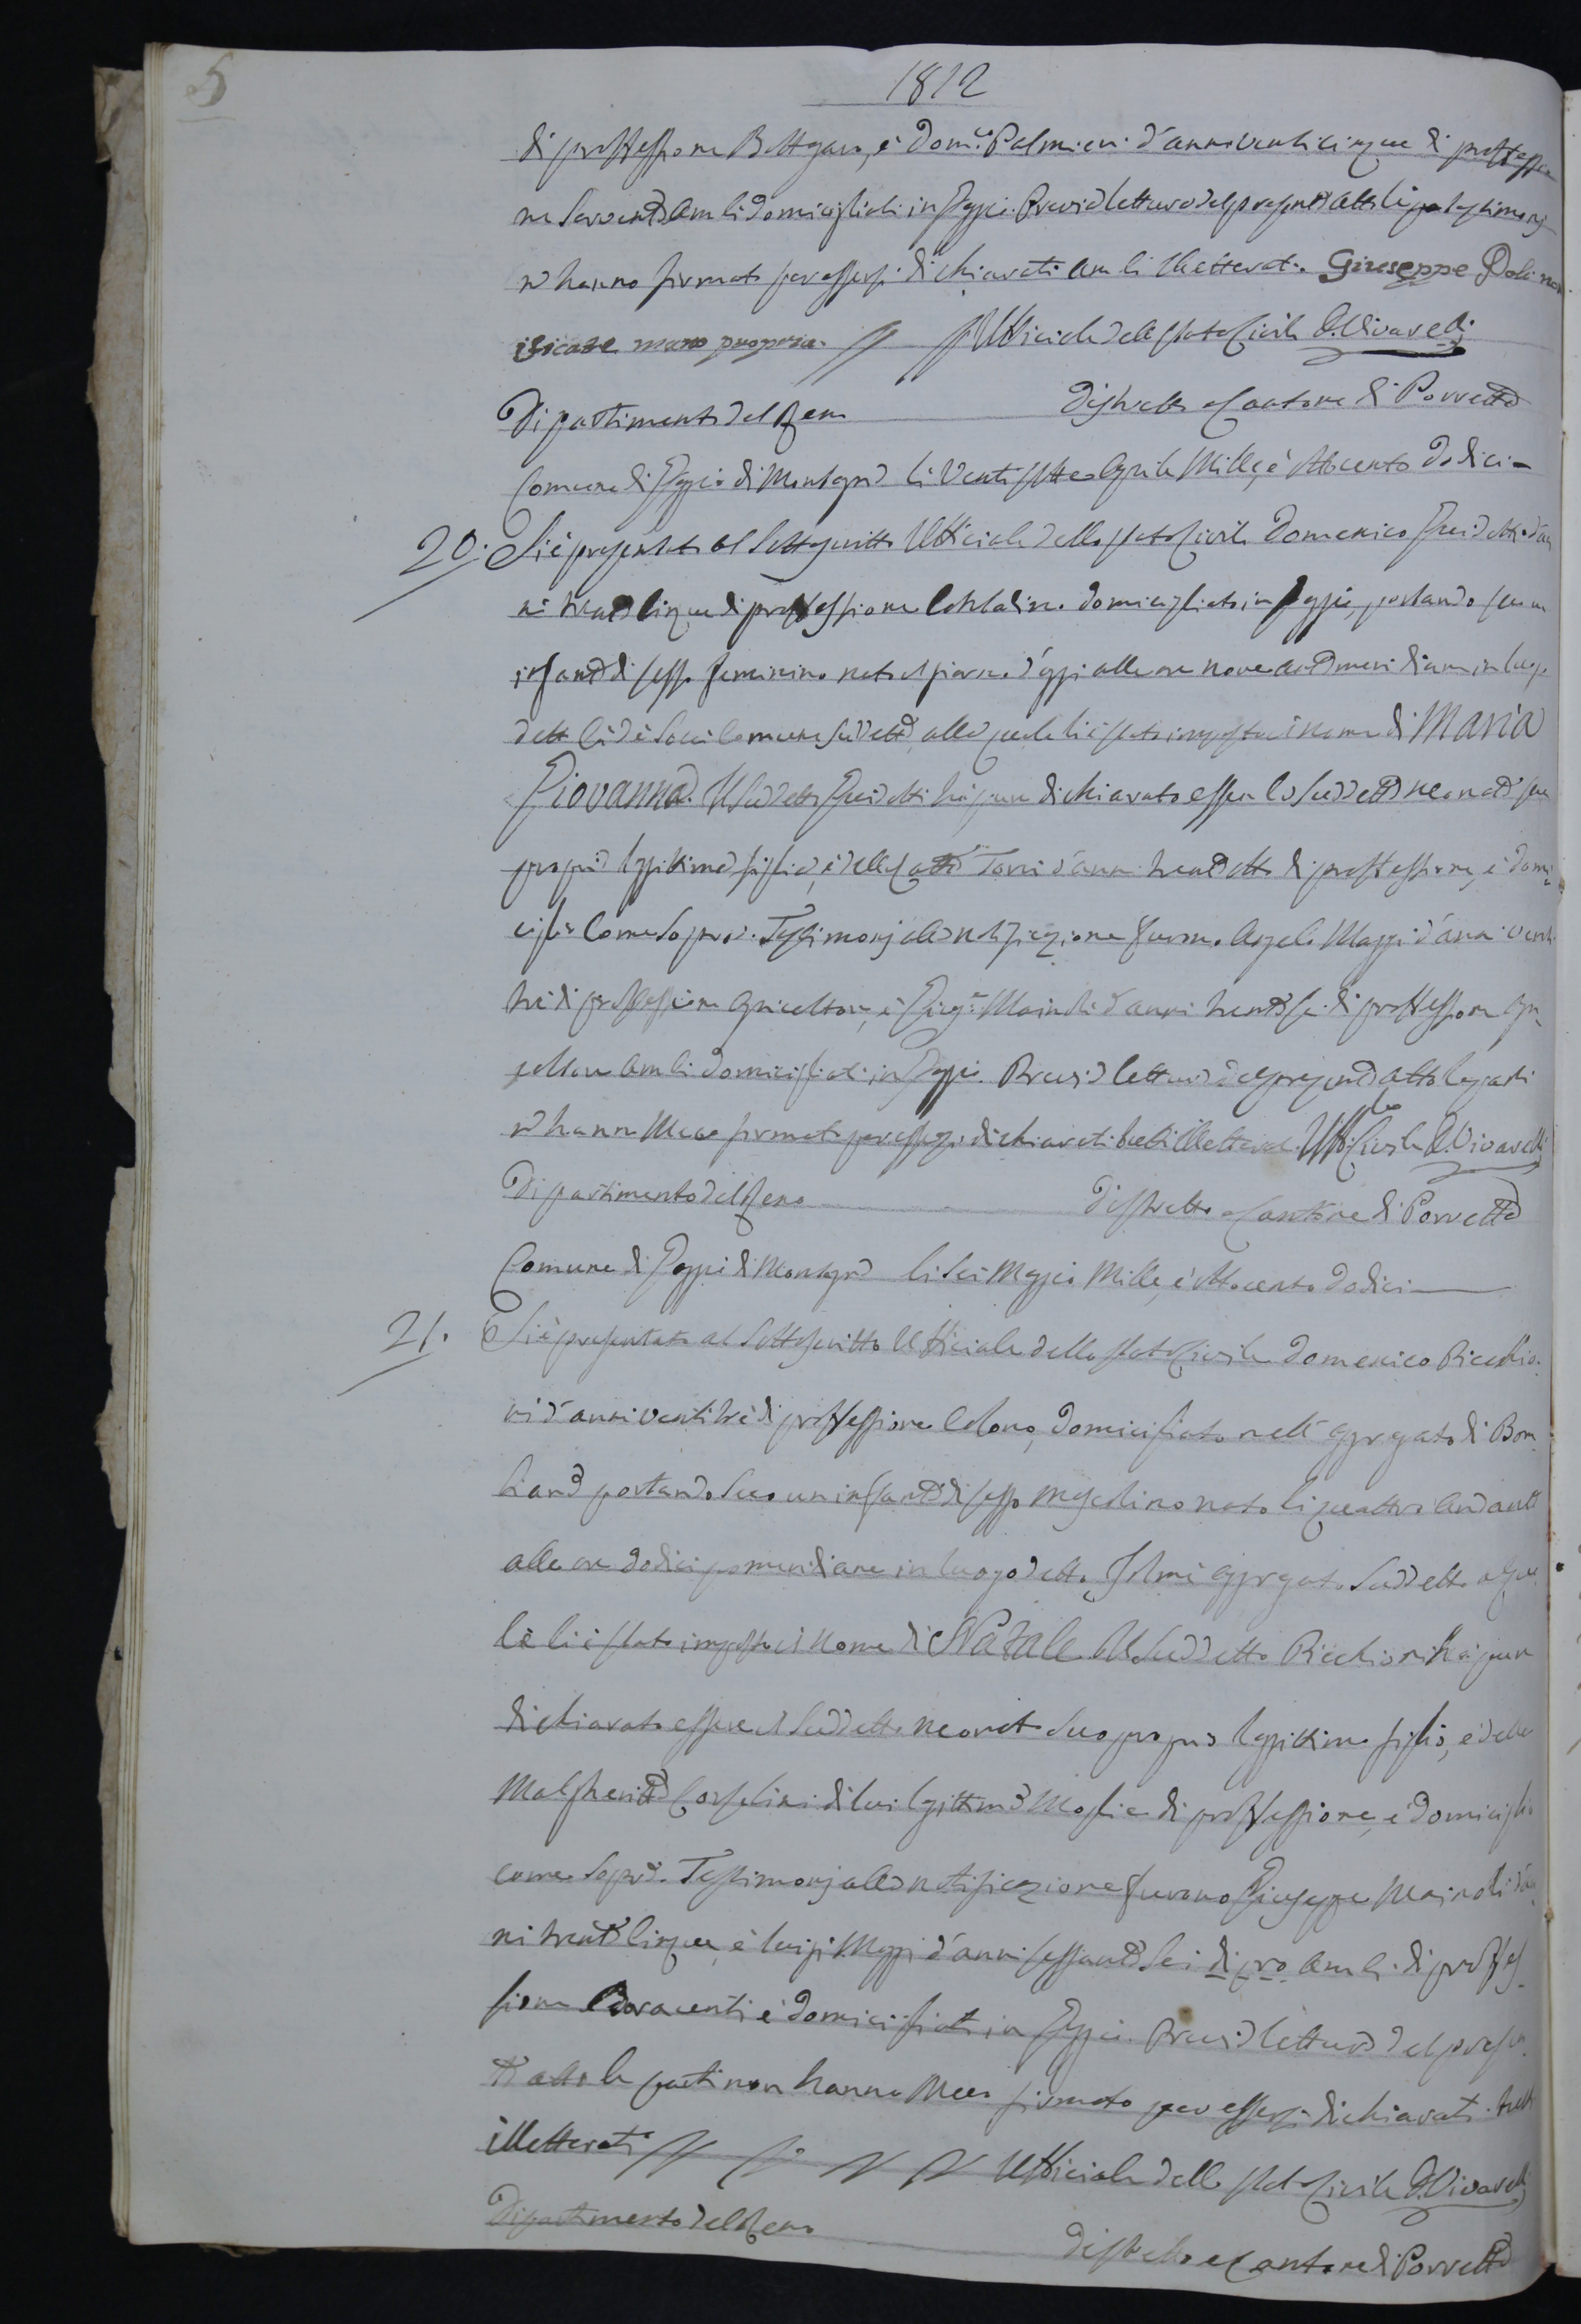 5
1812
di proffessione Bottegaro, e Dom.co Palmieri d'anni venticinque di proffessio
ne Servente ambi domicigliati in Poggio. Previa lettura del presente atto li testimonj
n hanno firmato per essersi dichiarati ambi illetterati. Giuseppe
mano propria. // L'Ufficiale dello Stato Civile G. Vivarelli
Dipartimento del Reno Distretto e Cantone di Porretta
Comune di Poggio di li Venti sette Aprile Mille, e ottocento dodici
20. Si è presentato al Sottoscritto Ufficiale dello Stato Civile Domenico Guidotti d'an
ni trenta cinque di proffessione Contadino domicigliato in Poggio, portando seco un
infante di sesso feminino nato il giorno d'oggi alle ore nove antimeridiane in luogo
detto Comune suddetta, alla quale li è stato imposto il nome di Maria
Giovanna. Il Suddetto Guidotti hà pure dichiarato essere la suddetta neonata sua
propria legittima figlia, e della Catta Torri d'anni trenta otto di proffessione, e domi
ciglio Come Sopra. Testimonj alla notificazione furono Angelo Maggi d'anni venti
trè di proffessione Agricoltore, e Mainoldi d'anni trenta sei di proffessione Agri
coltore ambi domicigliati in Poggio. Previa lettura del presente atto le parti
n hanno Meco firmato per essersi dichiarati illetterati. Uff.le Civile G. Vivarelli
Dipartimento del Reno Distretto e Cantone di Porretta
Comune di Poggio di li Sei Maggio Mille, e ottocento dodici
21. Si è presentato al Sottoscritto Ufficiale dello Stato Civile Domenico Ricchio
ni d'anni ventitrè di proffessione Colono, domicigliato nell' aggregato di Bom
biana portando Seco un infante di sesso mascolino nato li quattro andante
alle ore dodici pomeridiane in luogo detto aggregato Suddetto al qua
le li è stato imposto il nome di Natale Il Suddetto Ricchioni hà pure
dichiarato essere il Suddetto neonato Suo proprio legittimo figlio, e della
Malgherita Corsolini di lui legittima Moglie di proffessione, e domiciglio
come Sopra. Testimonj alla notificazione furono Giuseppe Mainoldi d'an
ni trenta cinque, e Luigi Maggi d'anni sessanta Sei di pro ambi di proffes
sione Bracenti e domicigliati in Poggio. Previa lettura del presen
te atto le parti non hanno Meco firmato per essersi dichiarati tutti
illetterati // // // // Ufficiale dello Stato Civile G. Vivarelli
Dipartimento del Reno Distretto e Cantone di Porretta